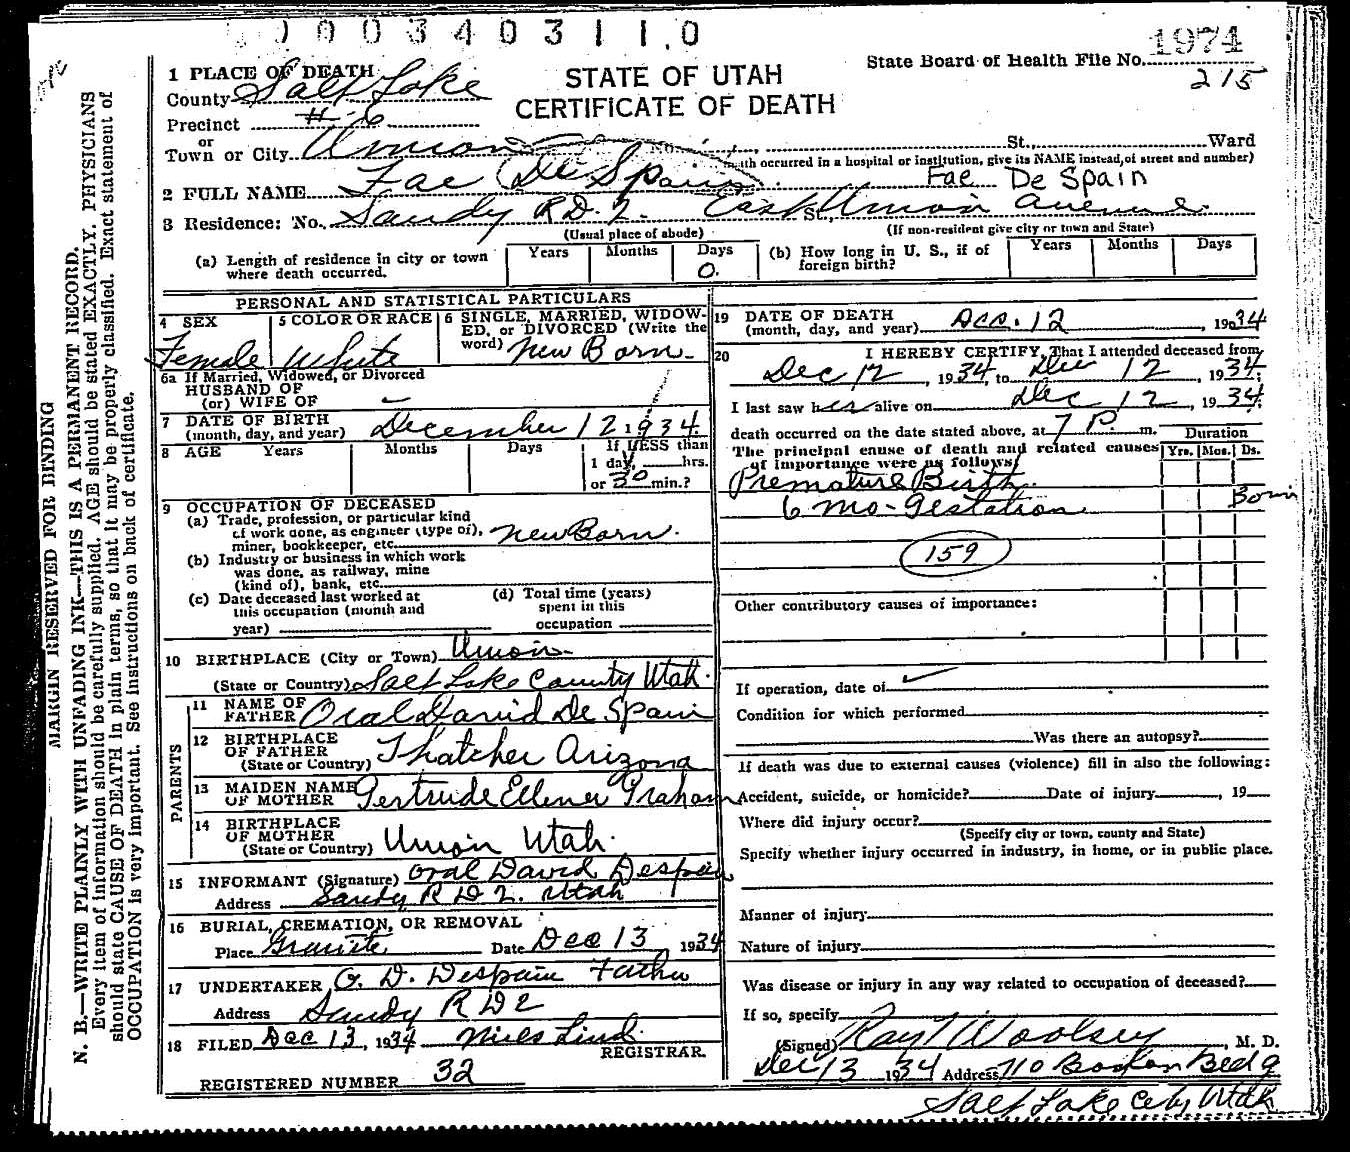 0 0 3 4 0 3 1 1 . 0
1974
State Board of Health File No.
215
STATE OF UTAH
CERTIFICATE OF DEATH
1 PLACE OF DEATH
County Salt Lake
Precinct # 6
or
Town or City Union No. St., Ward
death occurred in a hospital or institution, give its NAME instead, of street and number)
2 FULL NAME Fae De Spain Fae De Spain
3 Residence: No. Sandy R.D. 2. East Union Avenue St.,
(Usual place of abode) (If non-resident give city or town and State)
(a) Length of residence in city or town where death occurred. Years Months Days 0.
(b) How long in U. S., if of foreign birth? Years Months Days
PERSONAL AND STATISTICAL PARTICULARS
4 SEX Female
5 COLOR OR RACE White
6 SINGLE, MARRIED, WIDOW-
ED, or DIVORCED (Write the
word) New Born
6a If Married, Widowed, or Divorced
HUSBAND OF
(or) WIFE OF –
7 DATE OF BIRTH
(month, day, and year) December 12 1934.
8 AGE Years Months Days If LESS than
1 day, hrs.
or 30 min.?
9 OCCUPATION OF DECEASED
(a) Trade, profession, or particular kind
of work done, as engineer (type of),
miner, bookkeeper, etc. New Born.
(b) Industry or business in which work
was done, as railway, mine
(kind of), bank, etc.
(c) Date deceased last worked at
this occupation (month and
year)
(d) Total time (years)
spent in this
occupation
10 BIRTHPLACE (City or Town) Union
(State or Country) Salt Lake County Utah.
PARENTS
11 NAME OF
FATHER Oral David De Spain
12 BIRTHPLACE
OF FATHER
(State or Country) Thatcher Arizona
13 MAIDEN NAME
OF MOTHER Gertrude Ellener Graham
14 BIRTHPLACE
OF MOTHER
(State or Country) Union Utah.
15 INFORMANT (Signature) Oral David Despain
Address Sandy R D 2. Utah
16 BURIAL, CREMATION, OR REMOVAL
Place Granite Date Dec 13, 1934
17 UNDERTAKER O. D. Despain Father
Address Sandy R D 2
18 FILED Dec 13, 1934 Niels Lind
REGISTRAR.
REGISTERED NUMBER 32
19 DATE OF DEATH
(month, day, and year) Dec. 12, 1934
20 I HEREBY CERTIFY, That I attended deceased from
Dec 12, 1934, to Dec 12, 1934;
I last saw her alive on Dec 12, 1934;
death occurred on the date stated above, at 7 P. m. Duration
The principal cause of death and related causes Yrs. Mos. Ds.
of importance were as follows:
Premature Birth.
6 mo- Gestation Born
159
Other contributory causes of importance:
If operation, date of
Condition for which performed
Was there an autopsy?
If death was due to external causes (violence) fill in also the following:
Accident, suicide, or homicide? Date of injury , 19
Where did injury occur?
(Specify city or town, county and State)
Specify whether injury occurred in industry, in home, or in public place.
Manner of injury
Nature of injury
Was disease or injury in any way related to occupation of deceased?
If so, specify
(Signed) Ray T Woolsey, M. D.
Dec 13 1934 Address 710 Boston Bldg
Salt Lake City Utah
MARGIN RESERVED FOR BINDING
N. B.—WRITE PLAINLY WITH UNFADING INK—THIS IS A PERMANENT RECORD.
Every item of information should be carefully supplied. AGE should be stated EXACTLY. PHYSICIANS
should state CAUSE OF DEATH in plain terms, so that it may be properly classified. Exact statement of
OCCUPATION is very important. See instructions on back of certificate.